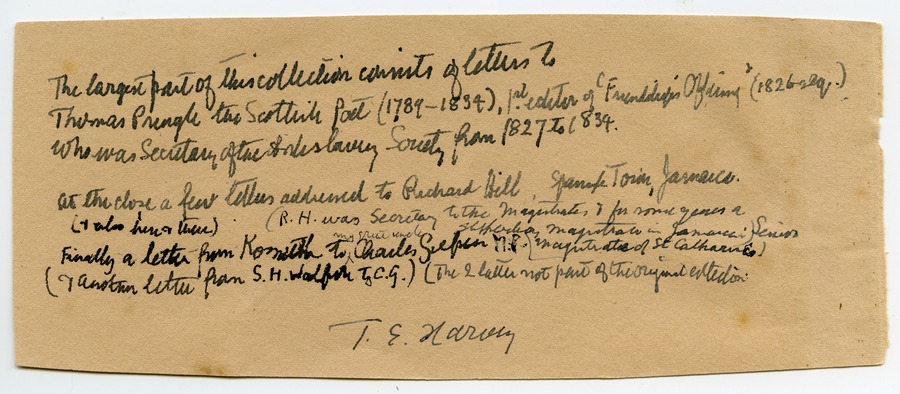 The largest part of this collection consists of letters to
Thomas Pringle the Scottish Poet (1789-1834), 1st editor of "Friendship's Offering" (1826-sq.)
who was Secretary of the Antislavery Society from 1827 to 1834.
At the close a few letters addressed to Richard Hill, Spanish Town, Jamaica.
(& also here & there). (R. H. was Secretary to the Magistrates & for some years a
Stipendiary magistrate in Jamaica: Senior
my great uncle
Finally a letter from Kossuth to Charles Gilpin M.P. (magistrate of St Catharines)
(& another letter from S. H. to C.G.) (The 2 latter not part of the original collection.
T. E. Harvey